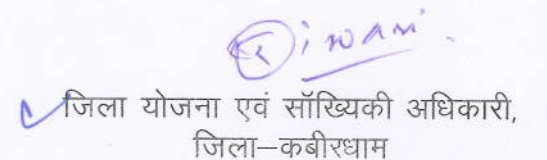 जिला योजना एवं सॉख्यिकी अधिकारी,
जिला–कबीरधाम